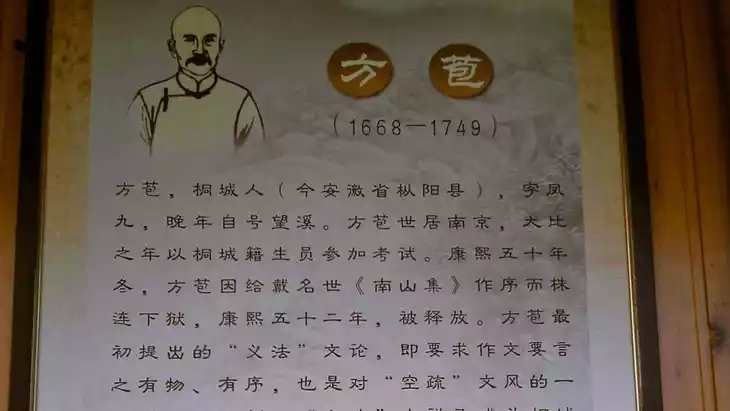 方苞
(1668—1749)
方苞，桐城人（今安徽省枞阳县），字凤
九，晚年自号望溪。方苞世居南京，大比
之年以桐城籍生员参加考试。康熙五十年
冬，方苞因给戴名世《南山集》作序而株
连下狱，康熙五十二年，被释放。方苞最
初提出的“义法”文论，即要求作文要言
之有物、有序，也是对“空疏”文风的一